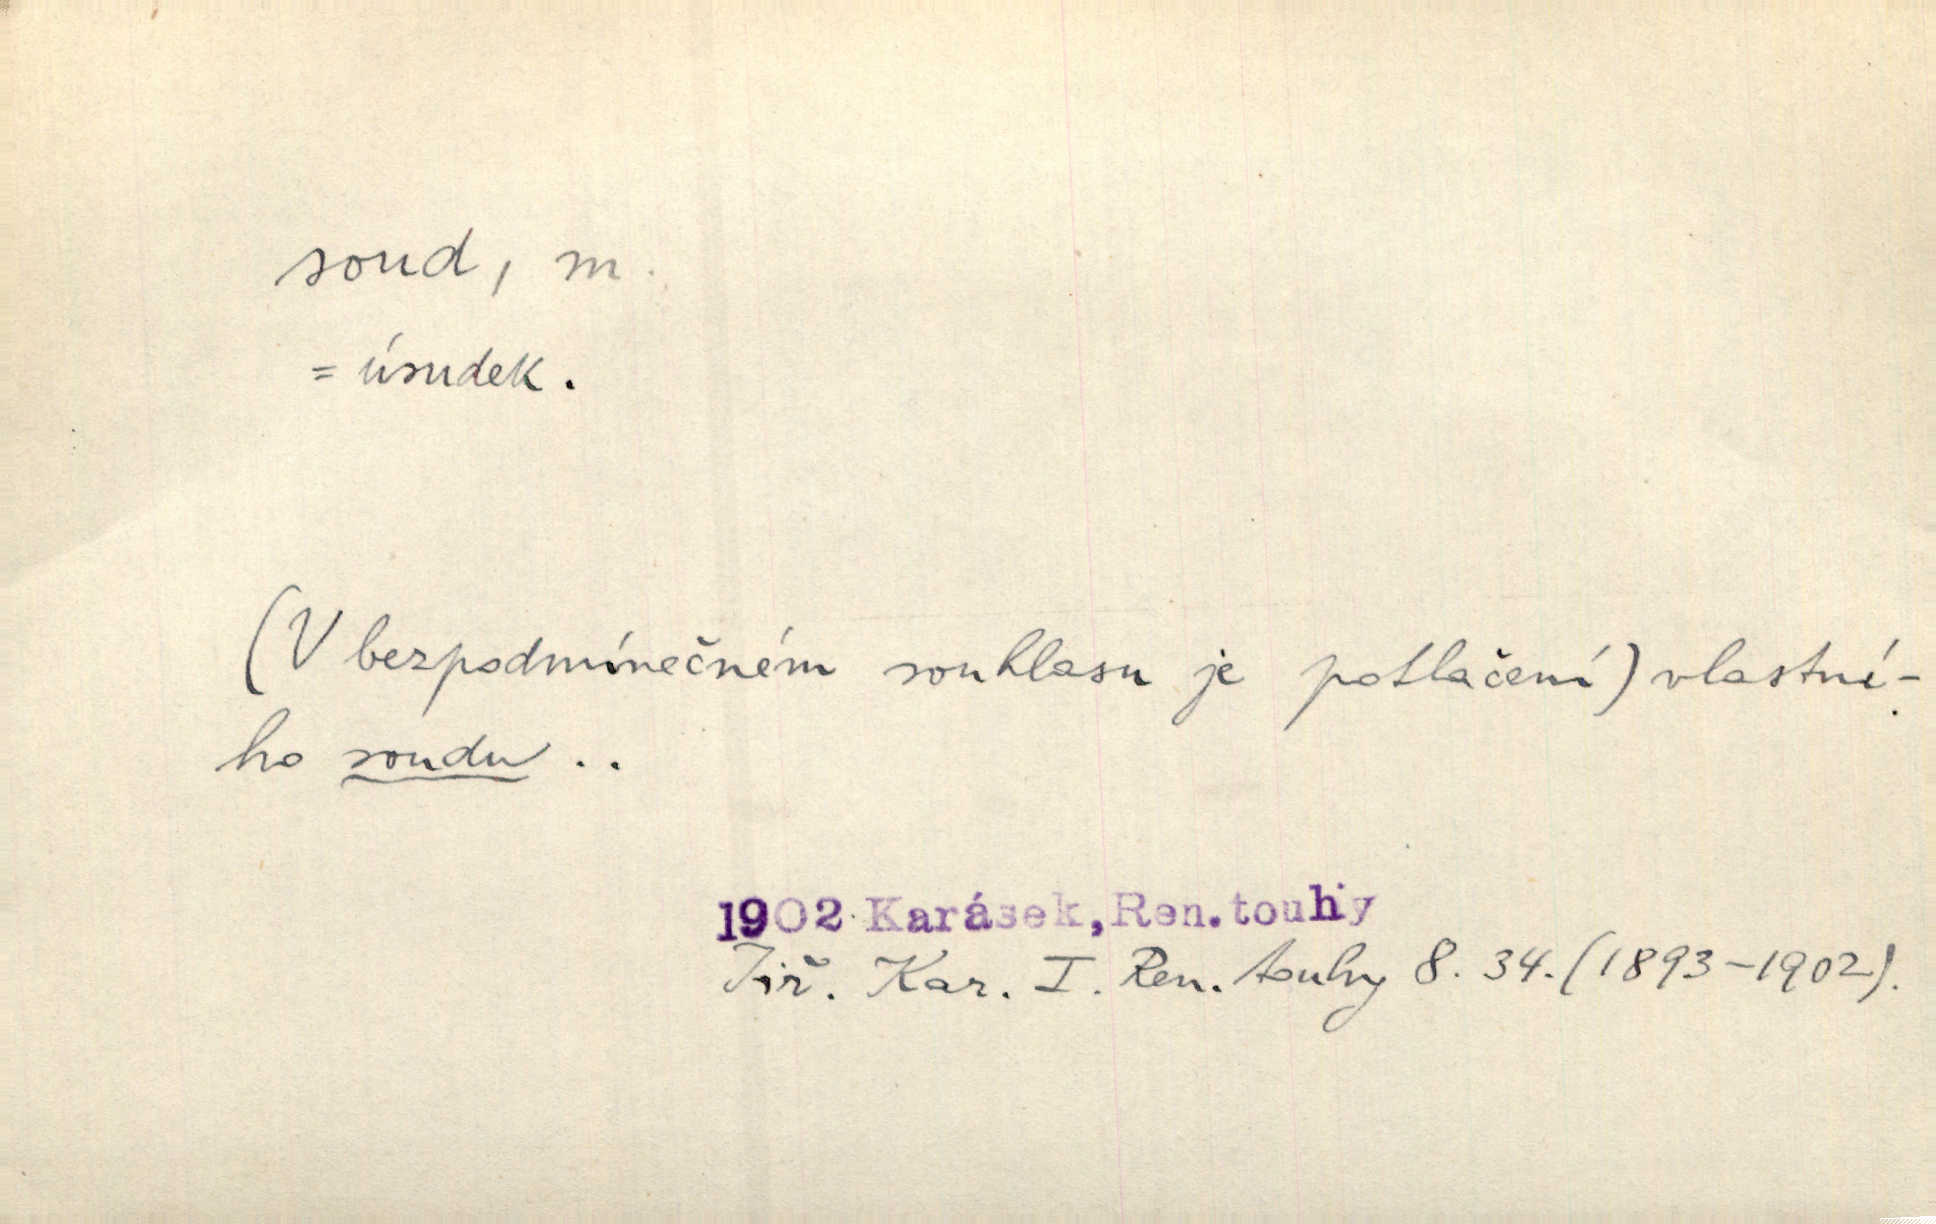 soud, m.
= úsudek.
(V bezpodmínečném souhlasu je potlačení) vlastné-
ho soudu ..
1902 Karásek, Ren. touhy
Jiř. Kar. I. Ren. touhy 8. 34. (1893-1902).